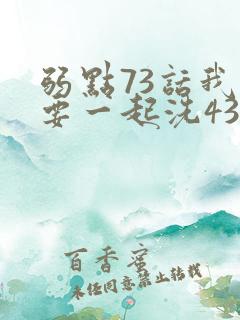 弱點73話我
要一起洗43
百香蜜
未經同意禁止轉載